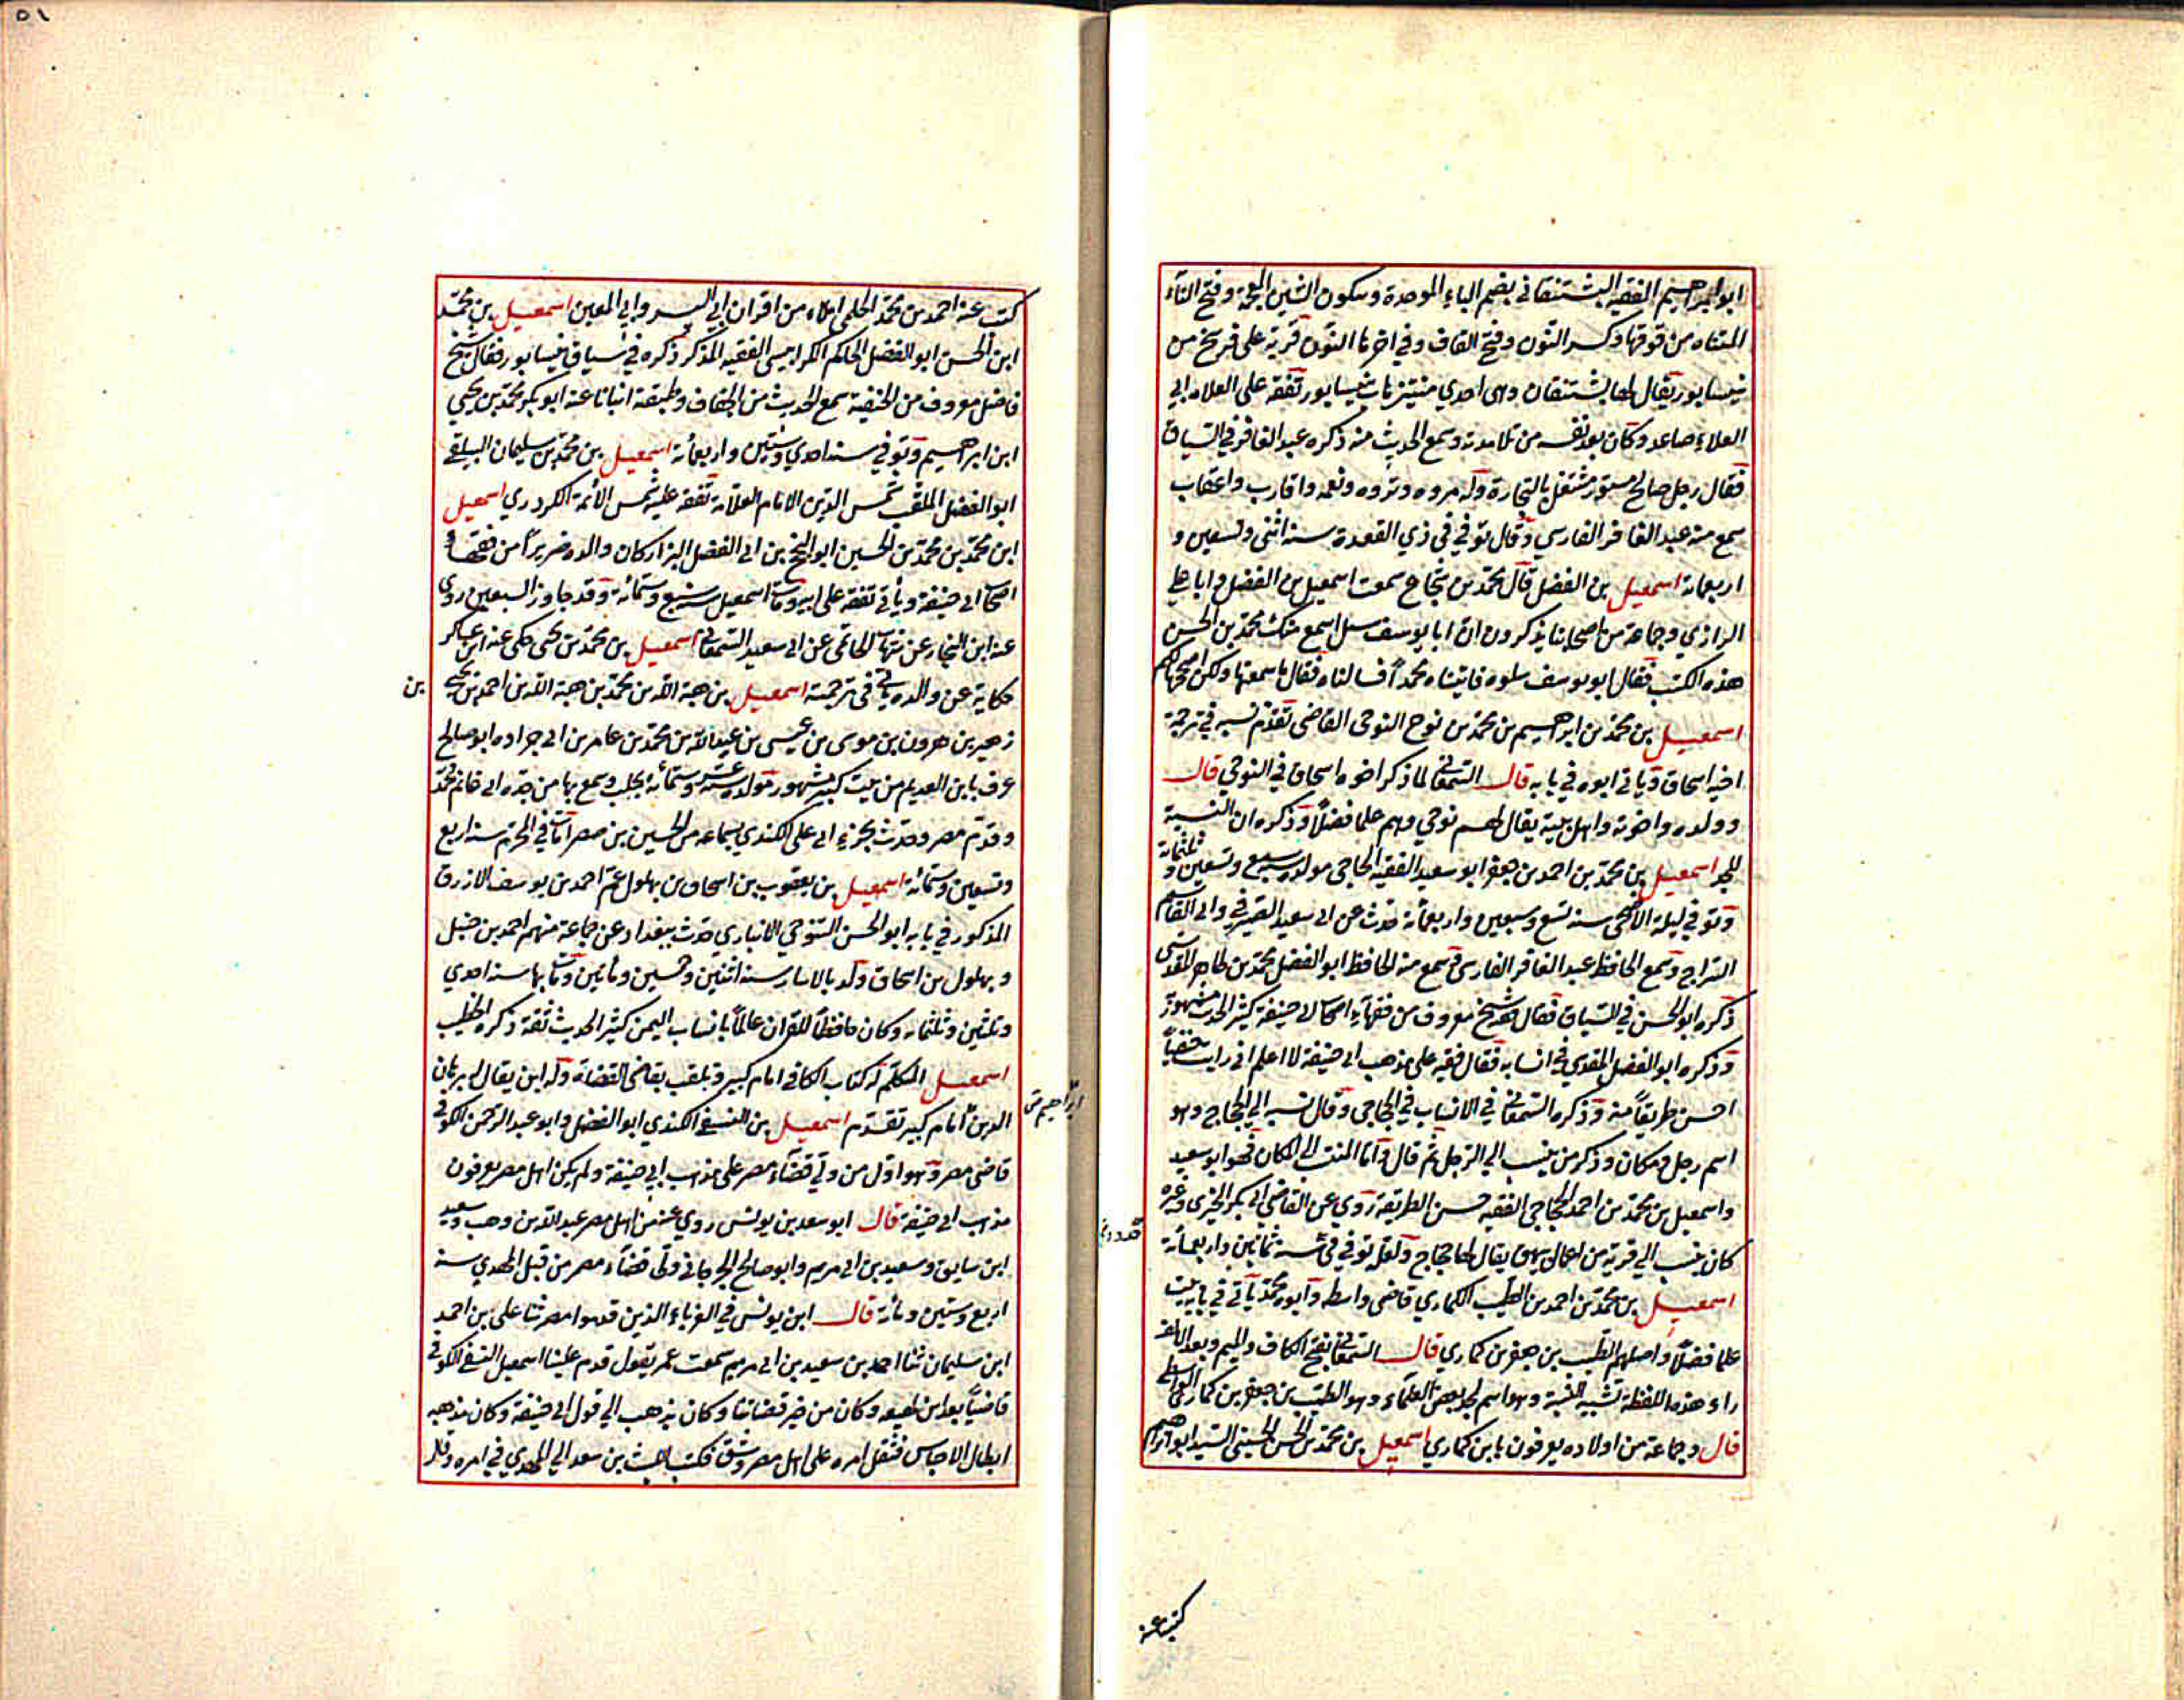 ابو ابراهيم الفقيه البشتنقاني بضم الباء الموحدة وسكون الشين المعجمة وفتح التاء
المثناه من فوقها وكسر النون وفتح القاف وفي اخرها النون قرية على فرسخ من
نيسابور يقال لها بشتنقان وهى احدي منتزهات نيسابور تفقه على العلاء ابي
العلاء صاعد وكان يعد نفسه من تلامذته وسمع الحديث منه ذكره عبد الغافر في السياق
فقال رجل صالح مستور مشتغل بالتجارة وله مروه وثروه ونعمه واقارب واعقاب
سمع منه عبد الغافر الفارسي وقال توفي في ذي القعدة سنة اثنى وتسعين و
اربعمائة اسمعيل بن الفضل قال محمد بن شجاع سمعت اسمعيل بن الفضل وابا علي
الرازي وجماعة من اصحابنا يذكرون ان ابا يوسف سئل اسمع منك محمد بن الحسن
هذه الكتب فقال ابو يوسف سلوه فاتيناه محمداً فسالناه فقال ما سمعتها ولكن اصححها لكم
اسمعيل بن محمد بن ابراهيم بن محمد بن نوح النوحى القاضى تقدم نسبه في ترجمة
اخيه اسحاق وياتى ابوه في بابه قال السمعاني لما ذكر اخوه اسحاق في النوحي قال
وولده واخوته واهل بيته يقال لهم نوحي وهم علما فضلاً وذكره ان النسبة
للجد اسمعيل بن محمد بن احمد بن جعفر ابو سعيد الفقيه الحجاجى مولده سنة سبع وتسعين وثلثمائة
وتوفي ليلة الاضحى سنة تسع وسبعين واربعمائة حدث عن ابى سعيد الصيرفي وابى القاسم
السراج وسمع الحافظ عبد الغافر الفارسى وسمع منه الحافظ ابو الفضل محمد بن طاهر المقدسى
ذكره ابو الحسن في السياق فقال شيخ معروف من فقهآء اصحاب ابى حنيفة كثير الحديث مشهور
وذكره ابو الفضل المقدسي في انسابه فقال فقيه على مذهب ابى حنيفة لا اعلم انى رايت حنفيا
احسن طريقاً منه وذكره السمعاني في الانساب في الحجاجى وقال نسبه الى الحجاج وهو
اسم رجل ومكان وذكر من ينسب الى الرجل ثم قال واما المنتسب الى المكان فهو ابو سعيد
واسمعيل بن محمد بن احمد الحجاجى الفقيه حسن الطريقة روي عن القاضى ابى بكر الحيرى وغيره
كان ينسب الى قرية من اعمال بيهق يقال لها حجاج ولعله توفي في سنة ثمانين واربعمائة
اسمعيل بن محمد بن احمد بن الطيب الكماري قاضى واسط وابوه محمد ياتي في بابه بيت
علما فضلاً واصلهم الطيب بن جعفر بن كماري قال السمعاني بفتح الكاف والميم وبعد الالف
راء هذه اللفظة تشبه النسبة وهو اسم لجد بعض العلماء وهو الطيب بن جعفر بن كماري الواسطى
قال وجماعة من اولاده يعرفون بابن كماري اسمعيل بن محمد بن الحسن الحسينى السيد ابو ابراهيم
كتب عنه
كتب عنه احمد بن محمد الخلمى املاء من اقران ابى اليسر وابي المعين اسمعيل بن محمد
ابن الحسن ابو الفضل الحاكم الكرابيسى الفقيه المذكر ذكره في سياق نيسابور فقال شيخ
فاضل معروف من الحنفية سمع الحديث من الخفاف وطبقته انبانا عنه ابو بكر محمد بن يحيى
ابن ابراهيم وتوفي سنة احدي وستين واربعمائة اسمعيل بن محمد بن سليمان البيلقى
ابو الفضل الملقب شمس الدين الامام العلامة تفقه عليه شمس الأئمة الكردري اسمعيل
ابن محمد بن محمد بن الحسين ابو الفتح بن ابى الفضل البزار كان والده ضريراً من فقهاء
اصحاب ابى حنيفة وياتي تفقه على ابيه ومات اسمعيل سنة سبع وستمائة وقد جاوز السبعين روى
عنه ابن النجار عن شهاب الحاتمى عن ابى سعيد السمعانى اسمعيل بن محمد بن يحى حكى عنه ابن عساكر
حكاية عن والده ياتي في ترجمة اسمعيل بن هبة الله بن محمد بن هبة الله بن احمد بن يحيى
بن
زهير بن هرون بن موسى بن عيسى بن عبد الله بن محمد بن عامر بن ابى جراده ابو صالح
عرف بابن العديم من بيت كبير مشهور مولده سنة عشر وستمائة بحلب وسمع بها من جده ابى غانم محمد
وقدم مصر وحدث بجزء ابى على الكندي بسماعه من الحسين بن صصرا مات في المحرم سنة اربع
وتسعين وستمائة اسمعيل بن يعقوب بن اسحاق بن بهلول عم احمد بن يوسف الازرق
المذكور في بابه ابو الحسن التنوخي الانباري حدث ببغداد عن جماعة منهم احمد بن حنبل
وبهلول بن اسحاق ولد بالانبار سنة اثنتين وخمسين ومأتين ومات بها سنة احدي
وثلثين وثلثمائه وكان حافظاً للقرآن عالماً بانساب اليمن كثير الحديث ثقة ذكره الخطيب
اسمعيل المتكلم له كتاب الكافي امام كبير ويلقب بقاضى القضاة وله ابن يقال له برهان
الدين امام كبير تقدم اسمعيل بن النسفى الكندي ابو الفضل وابو عبد الرحمن الكوفى
قاضى مصر وهو اول من ولي قضاء مصر على مذهب ابي حنيفة ولم يكن اهل مصر يعرفون
مذهب ابى حنيفة قال ابو سعد بن يونس روي عنه من اهل مصر عبد الله بن وهب وسعيد
ابن سابق وسعيد بن ابى مريم وابو صالح الحراجانى ولى قضآء مصر من قبل المهدي سنة
اربع وستين ومائة قال ابن يونس في الغرباء الذين قدموا مصر ثنا على بن احمد
ابن سليمان ثنا احمد بن سعيد بن ابى مريم سمعت عمر يقول قدم علينا اسمعيل النسفى الكوفى
قاضياً بعد ابن لهيعه وكان من خير قضاتنا وكان يذهب الى قول ابى حنيفة وكان مذهبه
ابطال الاحباس فثقل امره على اهل مصر وشق فكتب الليث بن سعد الى المهدي في امره وقال